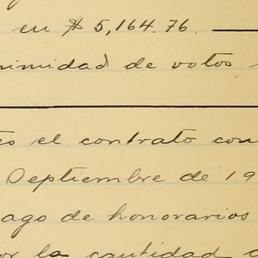 en $ 5,164.76.
nimidad de votos
es el contrato con
Septiembre de 19
ago de honorarios
or la cantidad